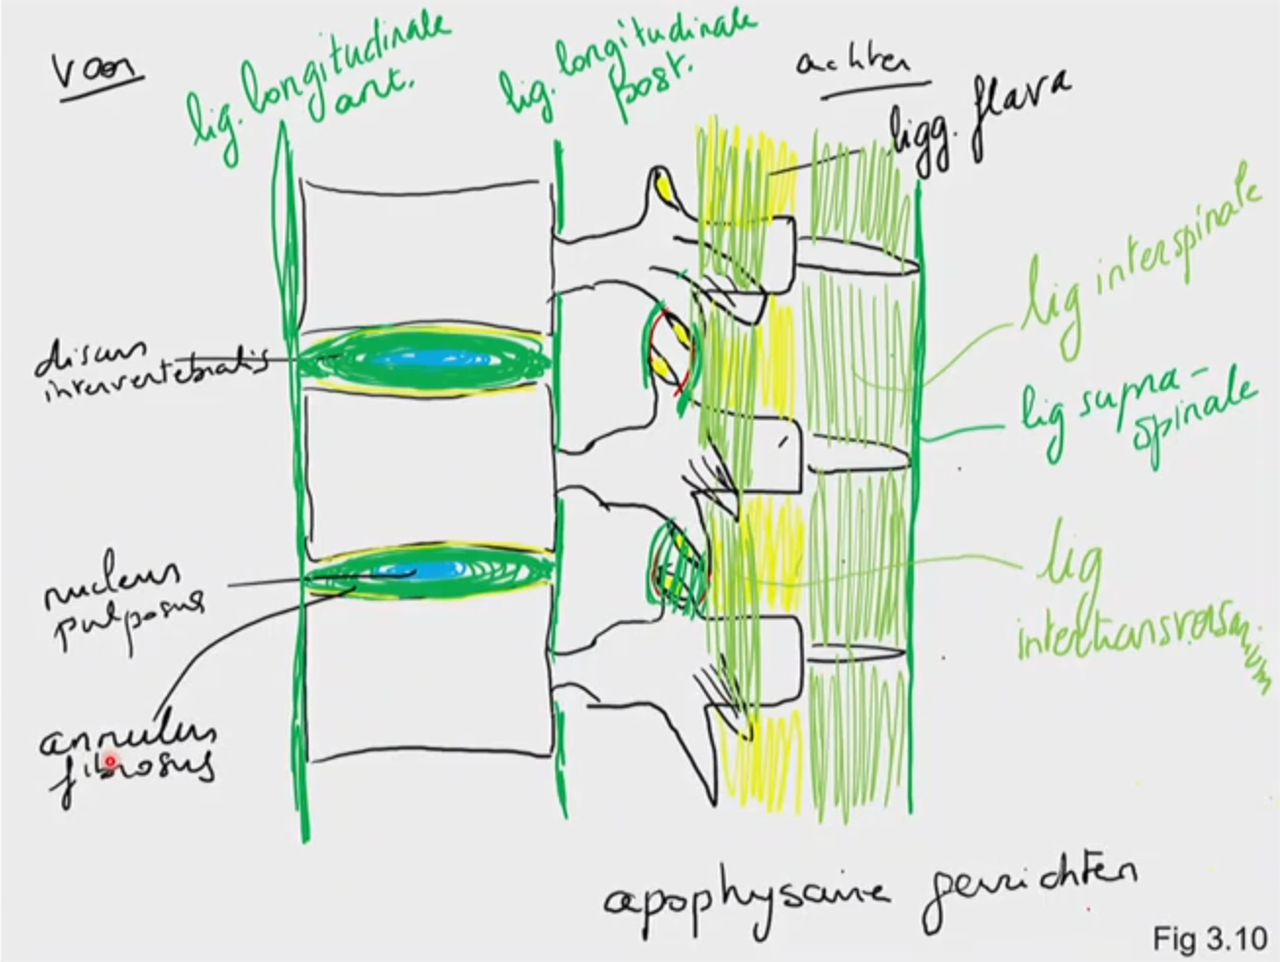 voor
lig. longitudinale
ant.
lig. longitudinale
post.
achter
ligg. flava
lig interspinale
discus
intervertebralis
lig supra-
spinale
nucleus
pulposus
lig
intertransversarium
annulus
fibrosus
apophysaire gewrichten
Fig 3.10